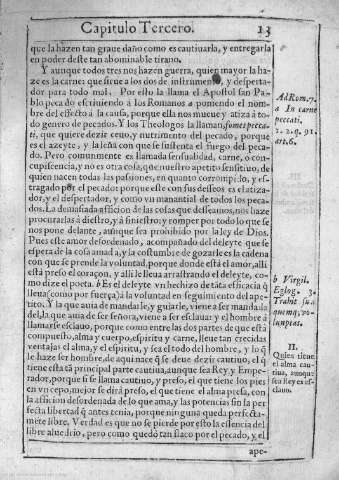 Capitulo Tercero. 13
que la hazen tan graue daño como es cautiuarla, y entregarla
en poder deste tan abominable tirano.
Y aunque todos tres nos hazen guerra, quien mayor la ha-
ze es la carne: que sirue a los dos de instrumento, y despertad
dor para todo mal. Por esto la llama el Apostol san Pa-
blo pecado escriuiendo a los Romanos a poniendo el nom-
bre del efecto à la causa, porque ella nos mueue y atiza à to-
do genero de pecados. Y los Theologos la llaman, fomes pecca-
ti, que quiere dezir ceuo, y nutrimento del pecado, porque
es el azeyte, y la leña con que se sustenta el fuego del peca-
do. Pero comunmente es llamada sensualidad, carne, o con-
cupiscencia, y no es otra cosa, que nuestro apetito sensitiuo, de
quien nacen todas las pasiones, en quanto corrompido, y es-
tragado por el pecado: porque este con sus desseos es el atiza-
dor, y el despertador, y como vn manantial de todos los peca-
dos. La demasiada aficion de las cosas que desseamos, nos haze
procurarlas à diestro, y à siniestro: y romper por todo lo que se
nos pone delante, aunque sea prohibido por la ley de Dios.
Pues este amor desordenado, acompañado del deleyte que se
espera de la cosa amada, y la costumbre de gozarle es la cadena
con que se prende la voluntad, porque donde està el amor, alli
està preso el coraçon, y alli le lleua arrastrando el deleyte, co-
mo dize el poeta. b Es el deleyte vn hechizo de tãta eficacia q̃
lleua (como por fuerça) à la voluntad en seguimiento del ape-
tito. Y la que auia de mandarle, y guiarle, viene a ser mandada
del, la que auia de ser señora, viene a ser esclaua: y el hombre à
llamarse esclauo, porque como entre las dos partes de que està
compuesto, alma y cuerpo, espiritu y carne, lleue tan crecidas
ventajas el alma, y el espiritu, y sea el todo del hombre, y lo q̃
le haze ser hombre, de aqui nace q̃ se deue dezir cautiuo, el q̃
tiene esta tã principal parte cautiua, aunque sea Rey y Empe-
rador, porque si se llama cautiuo, y preso, el que tiene los pies
en vn cepo, mejor se dirà preso, el que tiene el alma presa, con
la aficion desordenada de lo que ama, y las potencias sin la per-
fecta libertad q̃ antes tenia, porque ninguna queda perfecta-
mẽte libre. Verdad es que no se pierde por esto la essencia del
libre aluedrio, pero como quedò tan flaco por el pecado, y el
ape-
Ad Rom. 7.
a In carne
peccati.
1. 2. q. 91.
art. 6.
b Virgil.
Eglog. 3.
Trahit sua
quemq; vo-
luptas.
II.
Quien tiene
el alma cau-
tiua, aunque
sea Rey es es-
clauo.